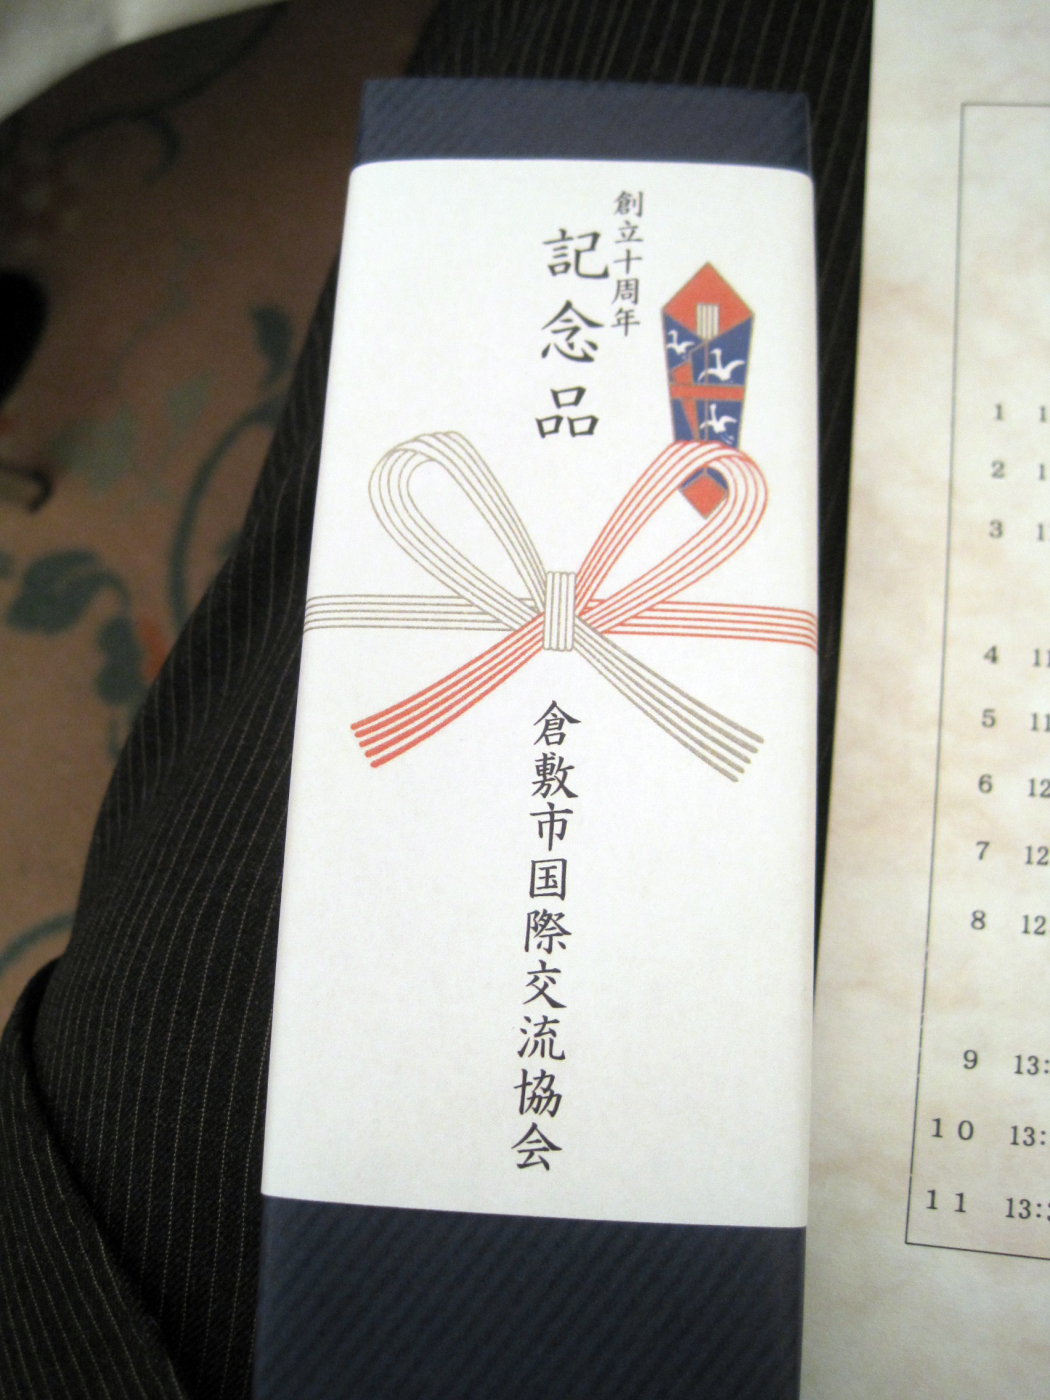 創立十周年
記念品
倉敷市国際交流協会
1 1
2 1
3 1
4 11
5 11
6 12
7 12
8 12
9 13:
10 13:
11 13: